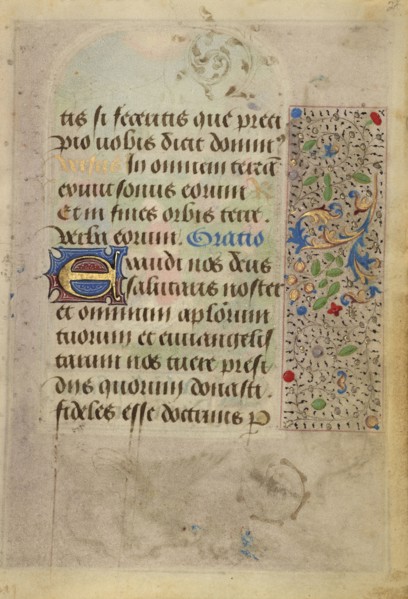 tis si feceritis que preci
pio vobis dicit dominꝰ
Versus In omnem terrā
exiuit sonus eorum
Et in fines orbis terre.
Verba eorum. Oratio
Exaudi nos deus
salutaris noster
et omnium aplōrum
tuorum et euuangelis
tarum nos tuere presi
diis quorum donasti.
fideles esse doctrinis p